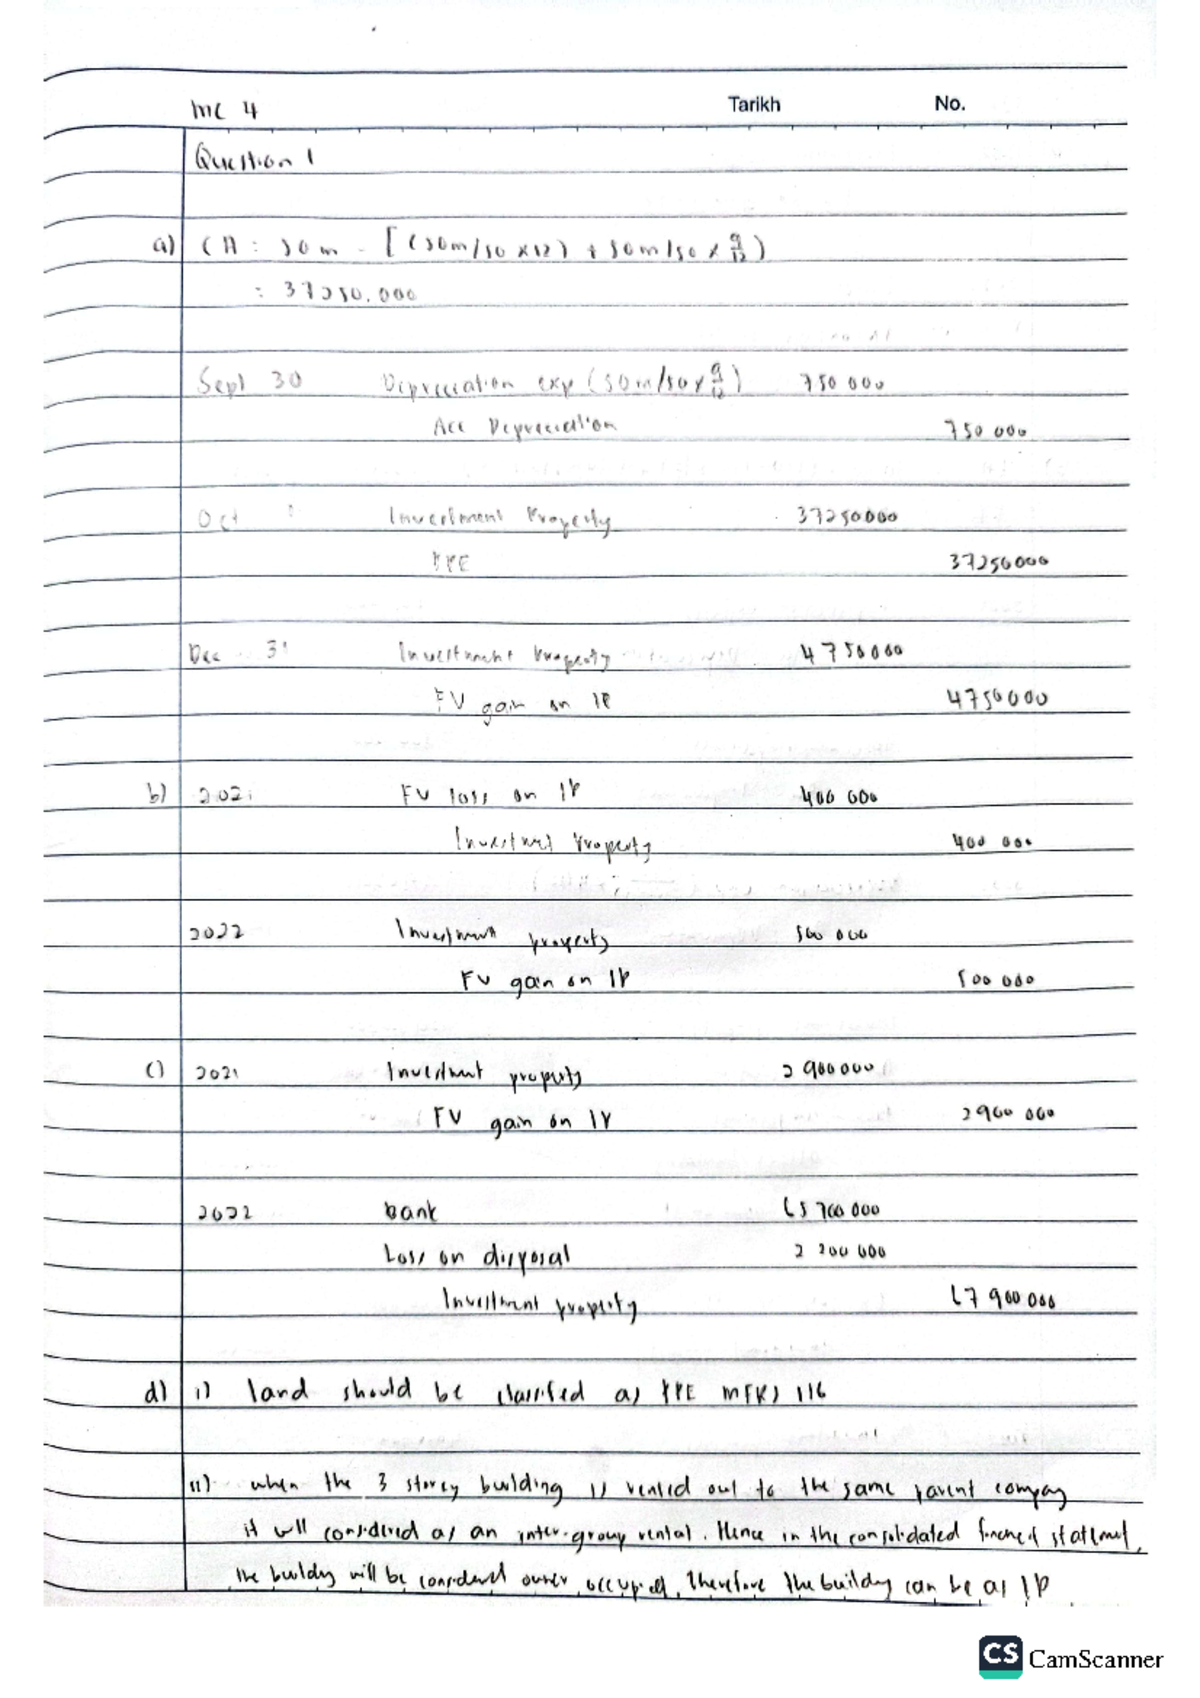 MC 4 Tarikh No.
Question 1
a) CA : 50m - [(50m/50 x 12) + 50m/50 x 9/12)
: 37250.000
Sept 30 Depreciation exp (50m/50 x 9/12) 750 000
Acc Depreciation 750 000
Oct Investment Property 37250000
PPE 37250000
Dec 31 Investment Property 4750000
FV gain on IP 4750000
b) 2021 FV loss on IP 400 000
Investment Property 400 000
2022 Investment property 500 000
FV gain on IP 500 000
c) 2021 Investment property 2900000
FV gain on IP 2900 000
2022 bank 65700 000
Loss on disposal 2 200 000
Investment property 67900 000
d) i) land should be classified as PPE MFRS 116
ii) when the 3 storey building is rented out to the same parent company
it will considered as an inter-group rental. Hence in the consolidated financial statement,
the building will be considered owner occupied, therefore the building can be as IP
CS CamScanner